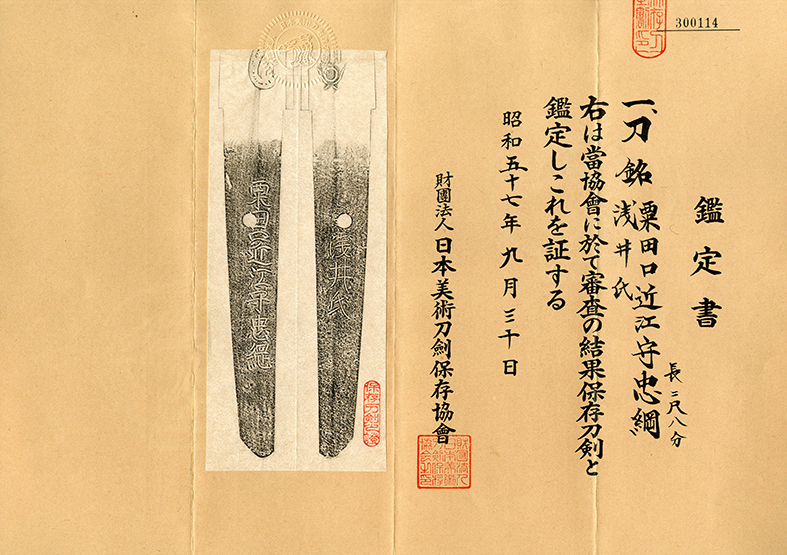 300114
鑑定書
一、刀 銘 粟田口近江守忠綱
浅井氏
長二尺八分
右は當協會に於て審査の結果保存刀剣と
鑑定しこれを証する
昭和五十七年九月三十日
財團法人日本美術刀劍保存協會
浅井氏
粟田口近江守忠綱